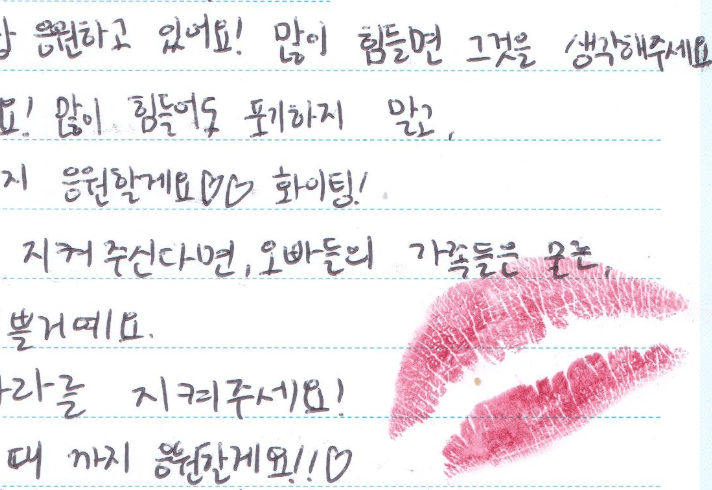 응원하고 있어요! 많이 힘들면 그것을 생각해주세요
요! 많이 힘들어도 포기하지 말고,
지 응원할게요♡♡ 화이팅!
지켜 주신다면, 오빠들의 가족들은 물론,
쁠거예요.
라를 지켜주세요!
때 까지 응원할게요!!♡